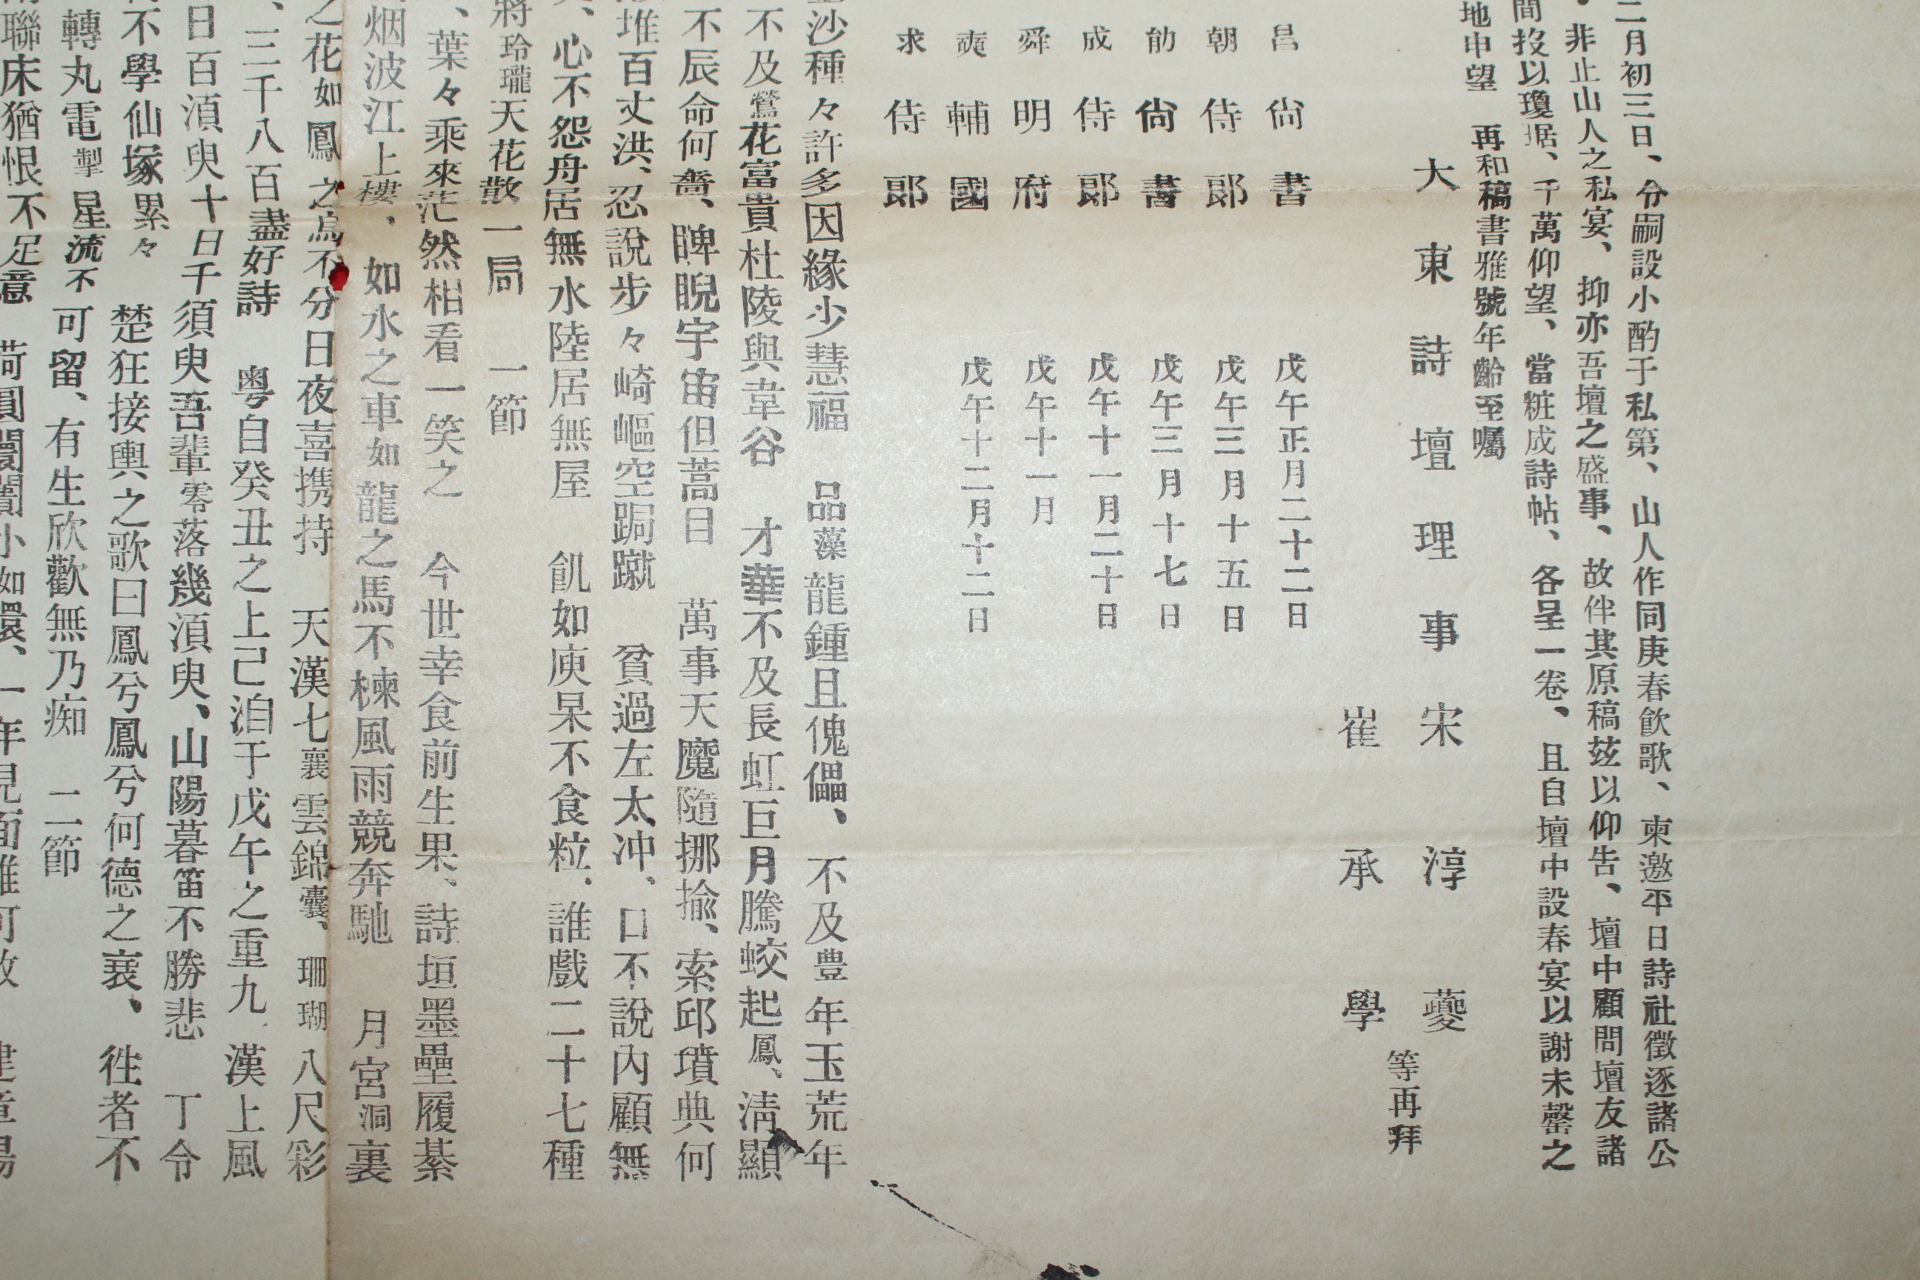 二月初三日、分嗣設小酌于私第、山人作同庚春飮歌、柬邀平日詩社徵逐諸公
非止山人之私宴、抑亦吾壇之盛事、故伴其原稿玆以仰告、壇中顧問壇友諸
間投以瓊琚、千萬仰望、當粧成詩帖、各呈一卷、且自壇中設春宴以謝未罄之
地申望 再和稿書雅號年齡至囑
大東詩壇理事宋淳夔
崔承學
等再拜
昌尙書 戊午正月二十二日
朝侍郞 戊午三月十五日
尙書 戊午三月十七日
成侍郞 戊午十一月二十日
舜明府 戊午十一月
奭輔國 戊午十二月十二日
求侍郞
沙種々許多因緣少慧福 品藻龍鍾且傀儡、不及豊年玉荒年
不及鶯花富貴杜陵與韋谷 才華不及長虹巨月騰蛟起鳳、淸顯
不辰命何嗇、睥睨宇宙但蒿目 萬事天魔隨挪揄、索邱墳典何
堆百丈洪、忍說步々崎嶇空跼蹴 貧過左太冲、口不說內顧無
心不怨舟居無水陸居無屋 飢如庾杲不食粒、誰戱二十七種
將玲瓏天花散一局 一節
、葉々乘來茫然相看一笑之 今世幸食前生果、詩垣墨壘履綦
烟波江上樓、如水之車如龍之馬不楝風雨競奔馳 月宮洞裏
之花如鳳之鳥不分日夜喜携持 天漢七襄雲錦囊、珊瑚八尺彩
、三千八百盡好詩 粤自癸丑之上己洎于戊午之重九、漢上風
日百湏臾十日千須臾吾輩零落幾湏臾、山陽暮笛不勝悲 丁令
不學仙塚累々 楚狂接輿之歌曰鳳兮鳳兮何德之衰、徃者不
轉丸電掣星流不可留、有生欣歡無乃痴 二節
聯床猶恨不足意